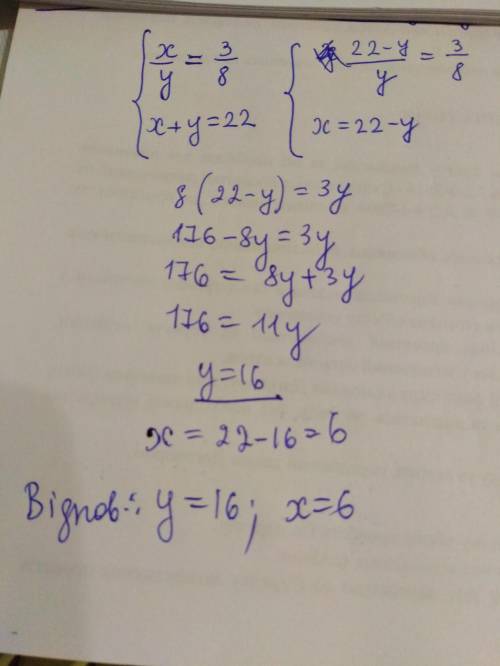 x/y = 3/8
x+y=22
22-y/y = 3/8
x=22-y
8(22-y)=3y
176-8y=3y
176= 8y+3y
176=11y
y=16
x=22-16=6
Відпов.: y=16; x=6